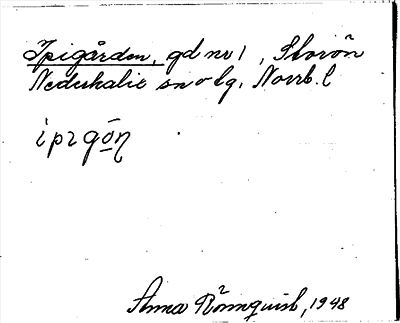 Ipigården, gd nr 1, Storön
Nederkalix sn o lg. Norrb. l
ipıgō̱ŋ
Anna Rönnquist, 1948